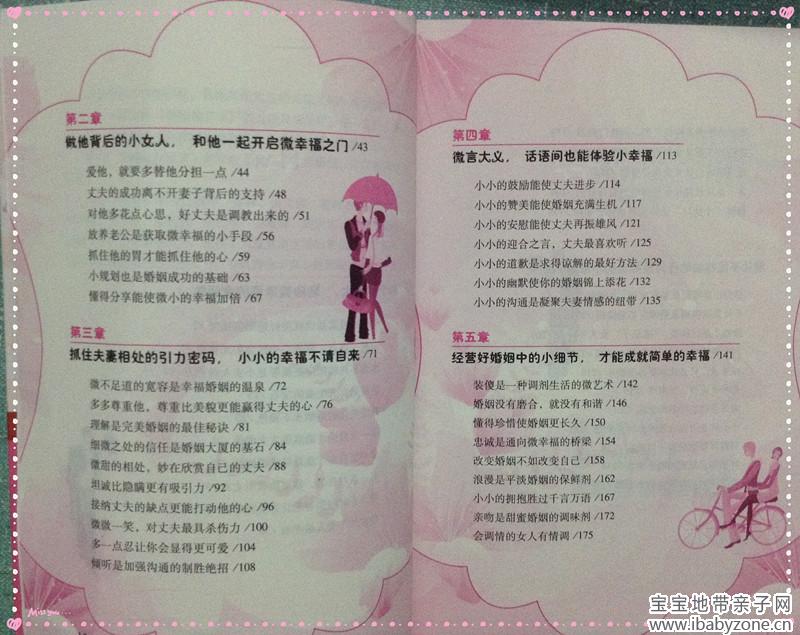 第二章
做他背后的小女人， 和他一起开启微幸福之门 /43
爱他，就要多替他分担一点 /44
丈夫的成功离不开妻子背后的支持 /48
对他多花点心思，好丈夫是调教出来的 /51
放养老公是获取微幸福的小手段 /56
抓住他的胃才能抓住他的心 /59
小规划也是婚姻成功的基础 /63
懂得分享能使微小的幸福加倍 /67
第三章
抓住夫妻相处的引力密码， 小小的幸福不请自来 /71
微不足道的宽容是幸福婚姻的温泉 /72
多多尊重他，尊重比美貌更能赢得丈夫的心 /76
理解是完美婚姻的最佳秘诀 /81
细微之处的信任是婚姻大厦的基石 /84
微甜的相处，妙在欣赏自己的丈夫 /88
坦诚比隐瞒更有吸引力 /92
接纳丈夫的缺点更能打动他的心 /96
微微一笑，对丈夫最具杀伤力 /100
多一点忍让你会显得更可爱 /104
倾听是加强沟通的制胜绝招 /108
第四章
微言大义， 话语间也能体验小幸福 /113
小小的鼓励能使丈夫进步 /114
小小的赞美能使婚姻充满生机 /117
小小的安慰能使丈夫再振雄风 /121
小小的迎合之言，丈夫最喜欢听 /125
小小的道歉是求得谅解的最好方法 /129
小小的幽默使你的婚姻锦上添花 /132
小小的沟通是凝聚夫妻情感的纽带 /135
第五章
经营好婚姻中的小细节， 才能成就简单的幸福 /141
装傻是一种调剂生活的微艺术 /142
婚姻没有磨合，就没有和谐 /146
懂得珍惜使婚姻更长久 /150
忠诚是通向微幸福的桥梁 /154
改变婚姻不如改变自己 /158
浪漫是平淡婚姻的保鲜剂 /162
小小的拥抱胜过千言万语 /167
亲吻是甜蜜婚姻的调味剂 /172
会调情的女人有情调 /175
Miss you
宝宝地带亲子网
www.ibabyzone.cn